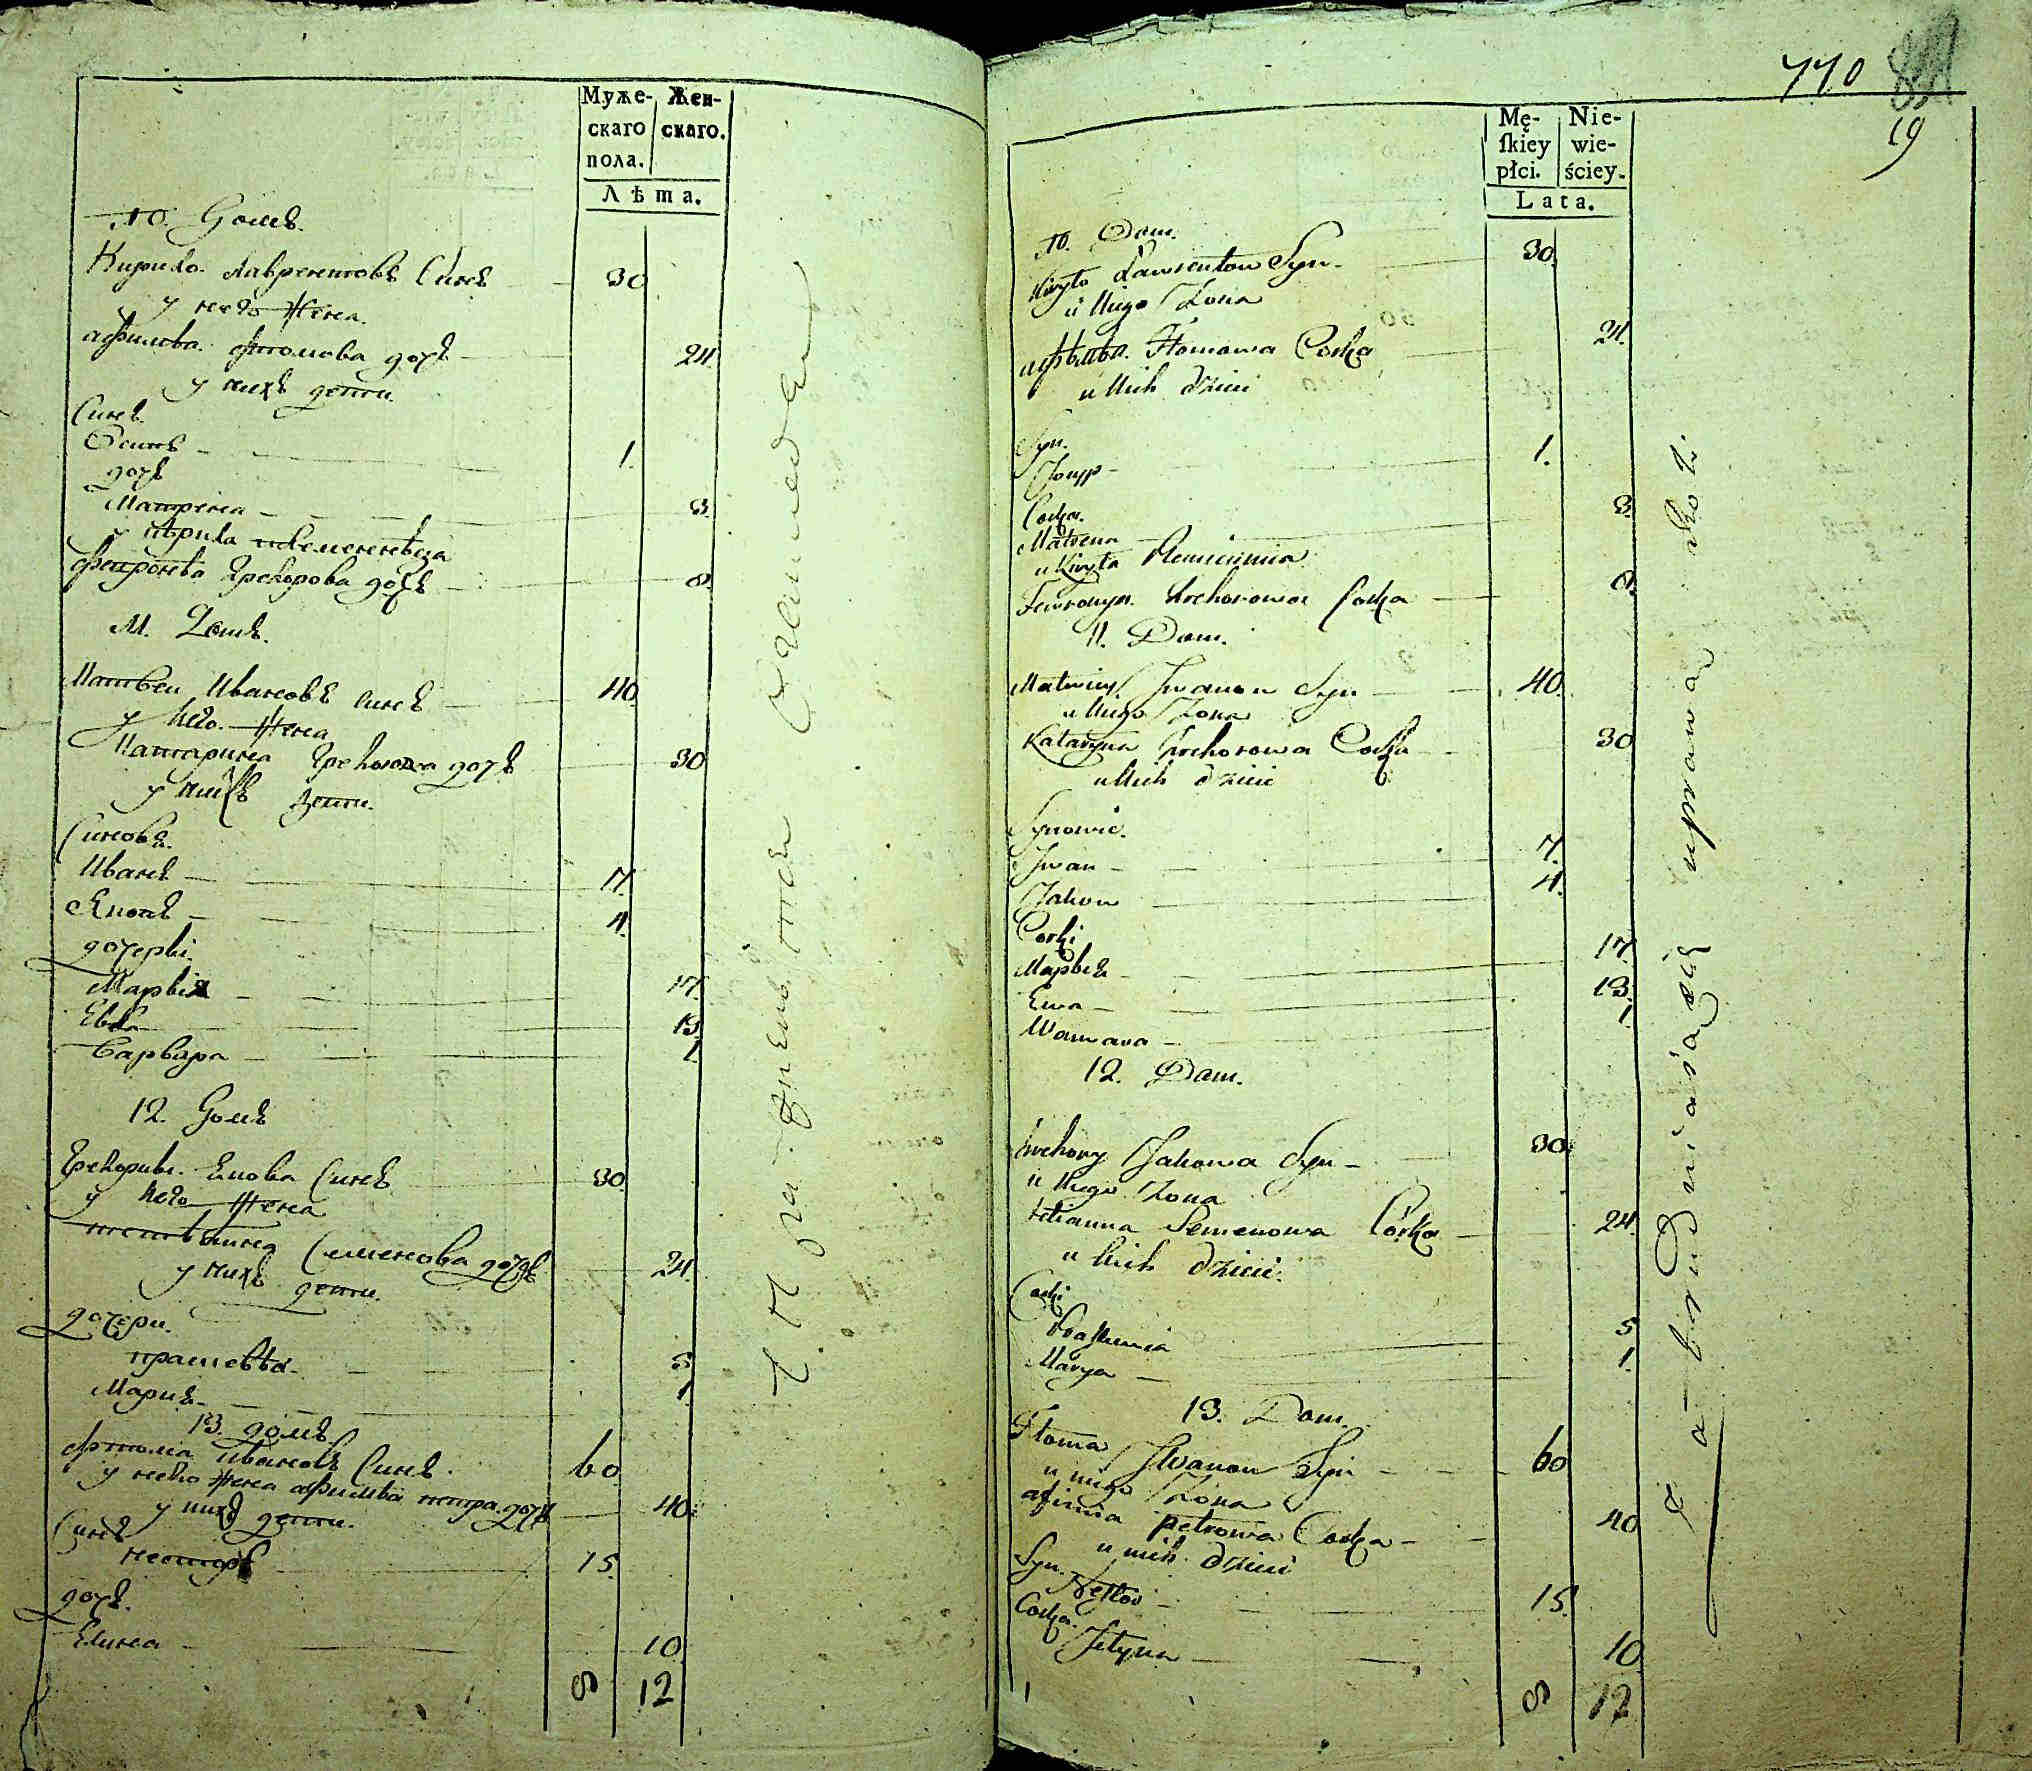 Муже-
скаго
пола.
Жен-
скаго.
Лѣта.
10. Домъ.
Кирило Лаврентовъ Синъ 30
у него Жена.
Афимва Фтомова дочь 24
у нихъ дети.
Синъ.
Осипъ 1.
дочь
Матрена 3.
у Кѣрила
Февронѣа Грекорова дочь 8.
11. Домъ.
Матвеи Ивановъ Синъ 40.
у него Жена
Катарина дочь 30
у нихъ дети.
Синова.
Иванъ 7.
4.
дочерьі.
Марьія 17.
Евва 13
Варвара 1.
12. Домъ
Грекориы Екова Синъ 30.
у него Жена
Семенова дочь 24.
у нихъ дети.
дочери.
5
Мария 1.
13. домъ
Фтома Ивановъ Синъ 60
у него Жена Афимва петра дочь 40.
у нихъ дети.
Синъ
Несторъ 15.
дочь.
Елина 10
8 12
770
19
Mę-
ſkiey
płci.
Nie-
wie-
ściey.
Lata.
10. Dom.
Kiryło Ławrentow Syn 30.
u Niego Zona
Ftomowa Corka 24.
u Nich dzieci
Syn.
Josyp 1.
Corka.
Matrena 3.
u Kiryła
Fewronya Hrehorowa Corka 8.
11. Dom.
Matwiey Jwanow Syn 40.
u Niego Zona
Kataryna Hrehorowa Corka 30
u Nich dzieci
Synowie.
Jwan 7.
Jakow 4.
Corki
Марьіа 17.
Ewa 13.
Warwara 1.
12. Dom.
Hrehory Jakowa Syn 30
u Niego Zona
Semenowa Córka 24.
u Nich dzieci.
Corki
5
Marya 1.
13. Dom.
Ftoma Jwanow Syn 60
u niego Zona
afimia petrowa Corka 40
u nich dzieci
Syn.
Nestor 15.
Corka.
10
8 12